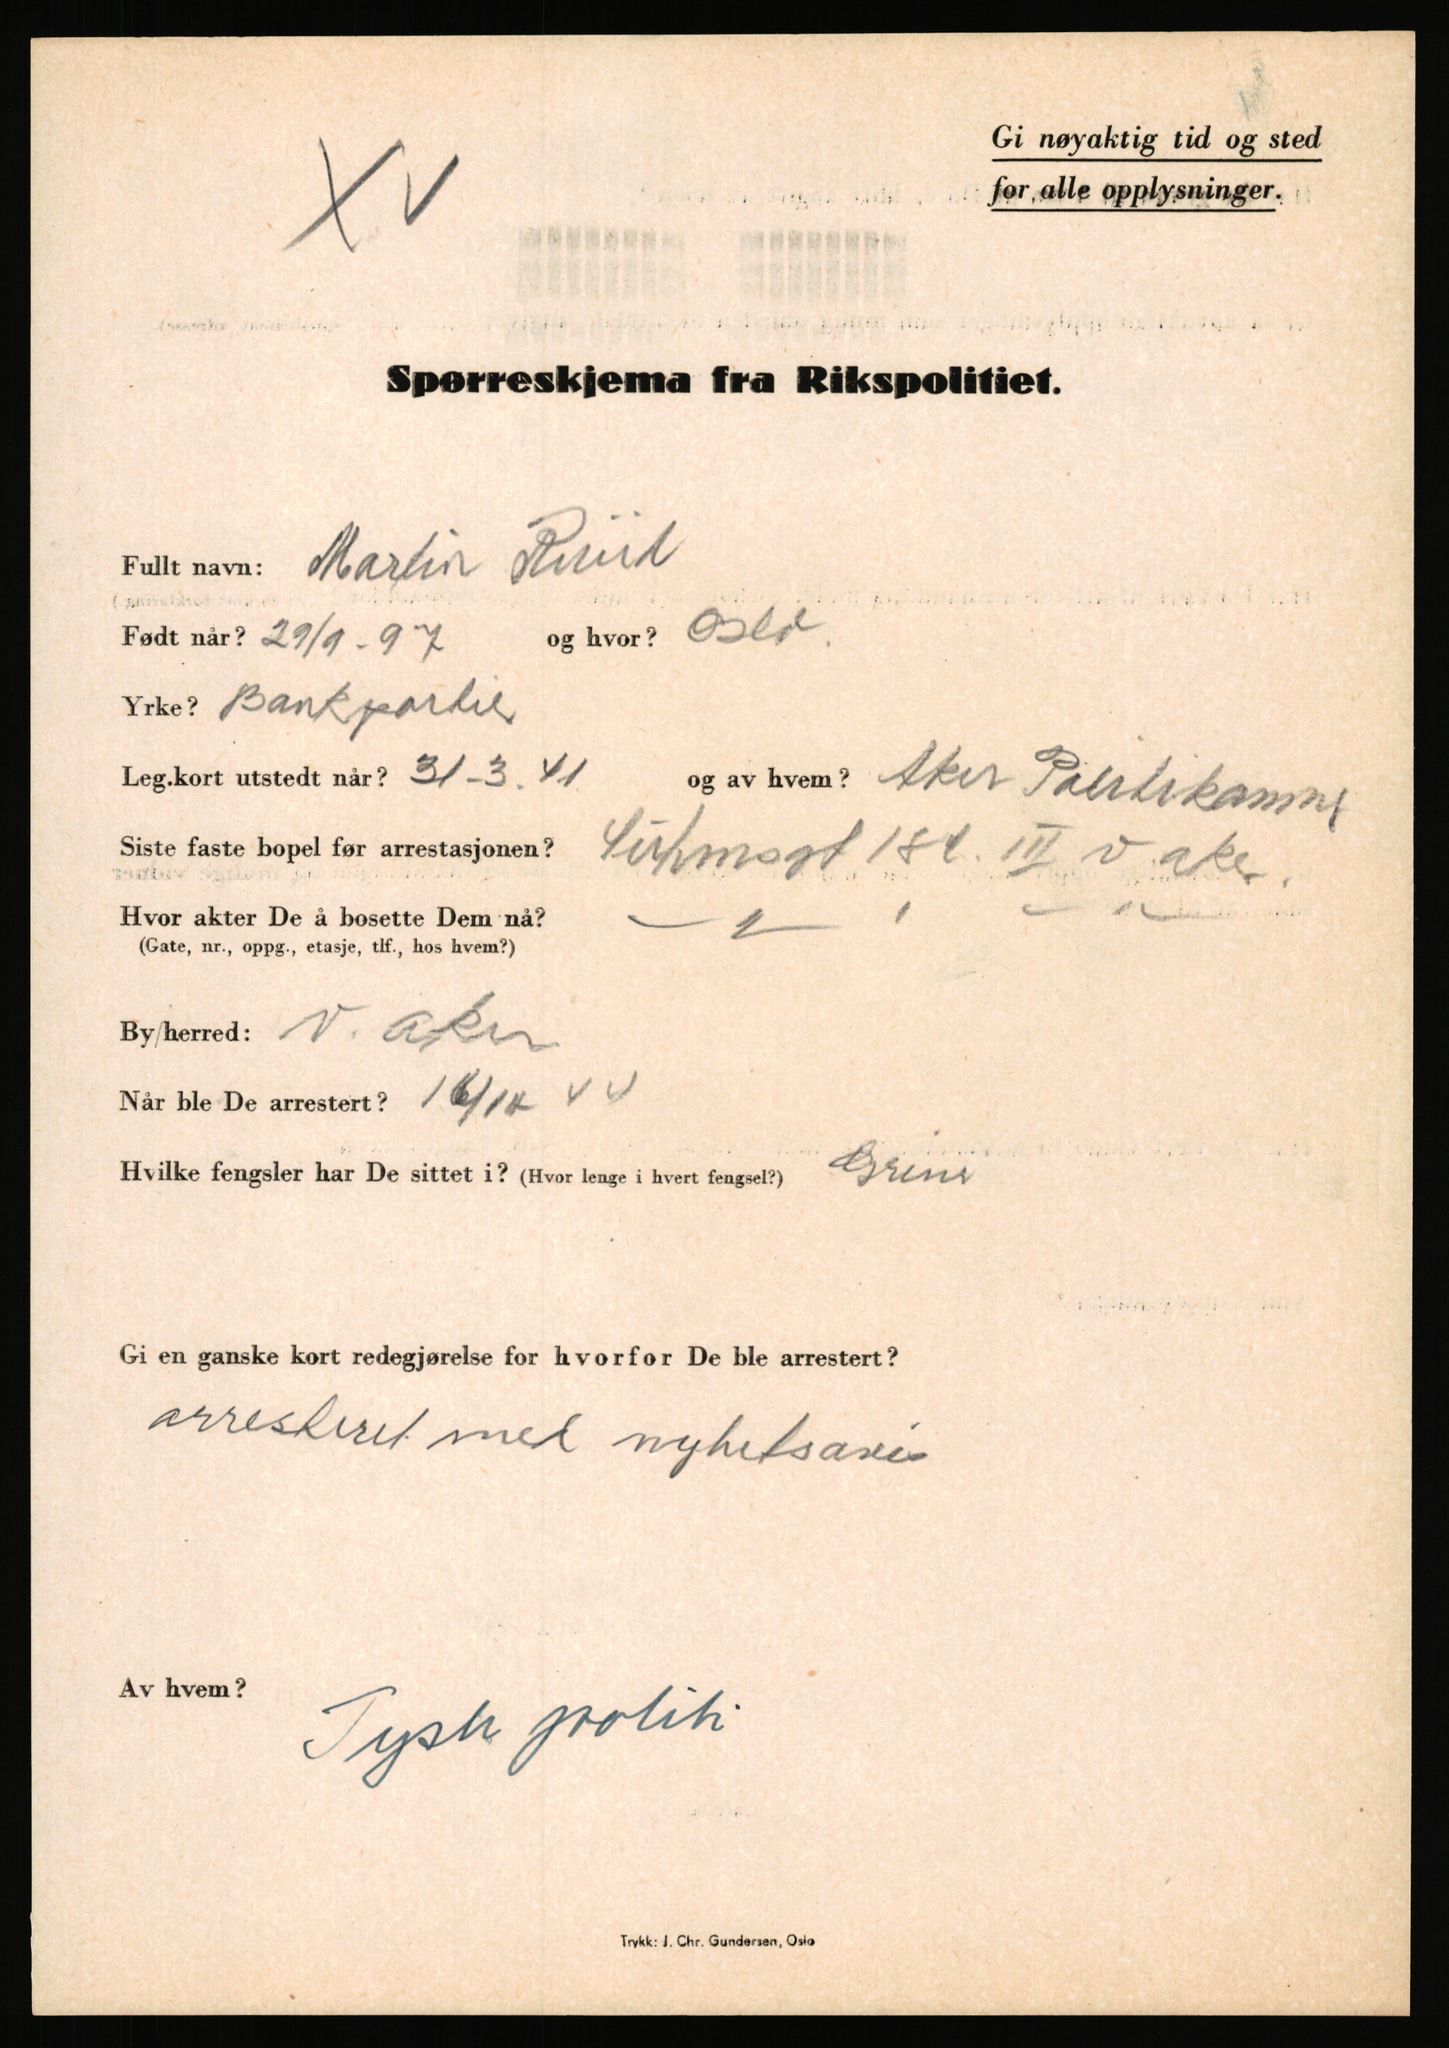 XV
Gi nøyaktig tid og sted
for alle opplysninger.
Spørreskjema fra Rikspolitiet.
Fullt navn: Martin Ruud
Født når? 29/9-97 og hvor? Oslo.
Yrke? Bankportier
Leg.kort utstedt når? 31-3.41 og av hvem? Aker Politikammer
Siste faste bopel før arrestasjonen? 18 III V. aker.
Hvor akter De å bosette Dem nå? — " — — " —
(Gate, nr., oppg., etasje, tlf., hos hvem?)
By/herred: V. aker
Når ble De arrestert? 44
Hvilke fengsler har De sittet i? (Hvor lenge i hvert fengsel?) Grini
Gi en ganske kort redegjørelse for hvorfor De ble arrestert?
arresteret med nyhetsavis
Av hvem? Tysk politi
Trykk: J. Chr. Gundersen, Oslo